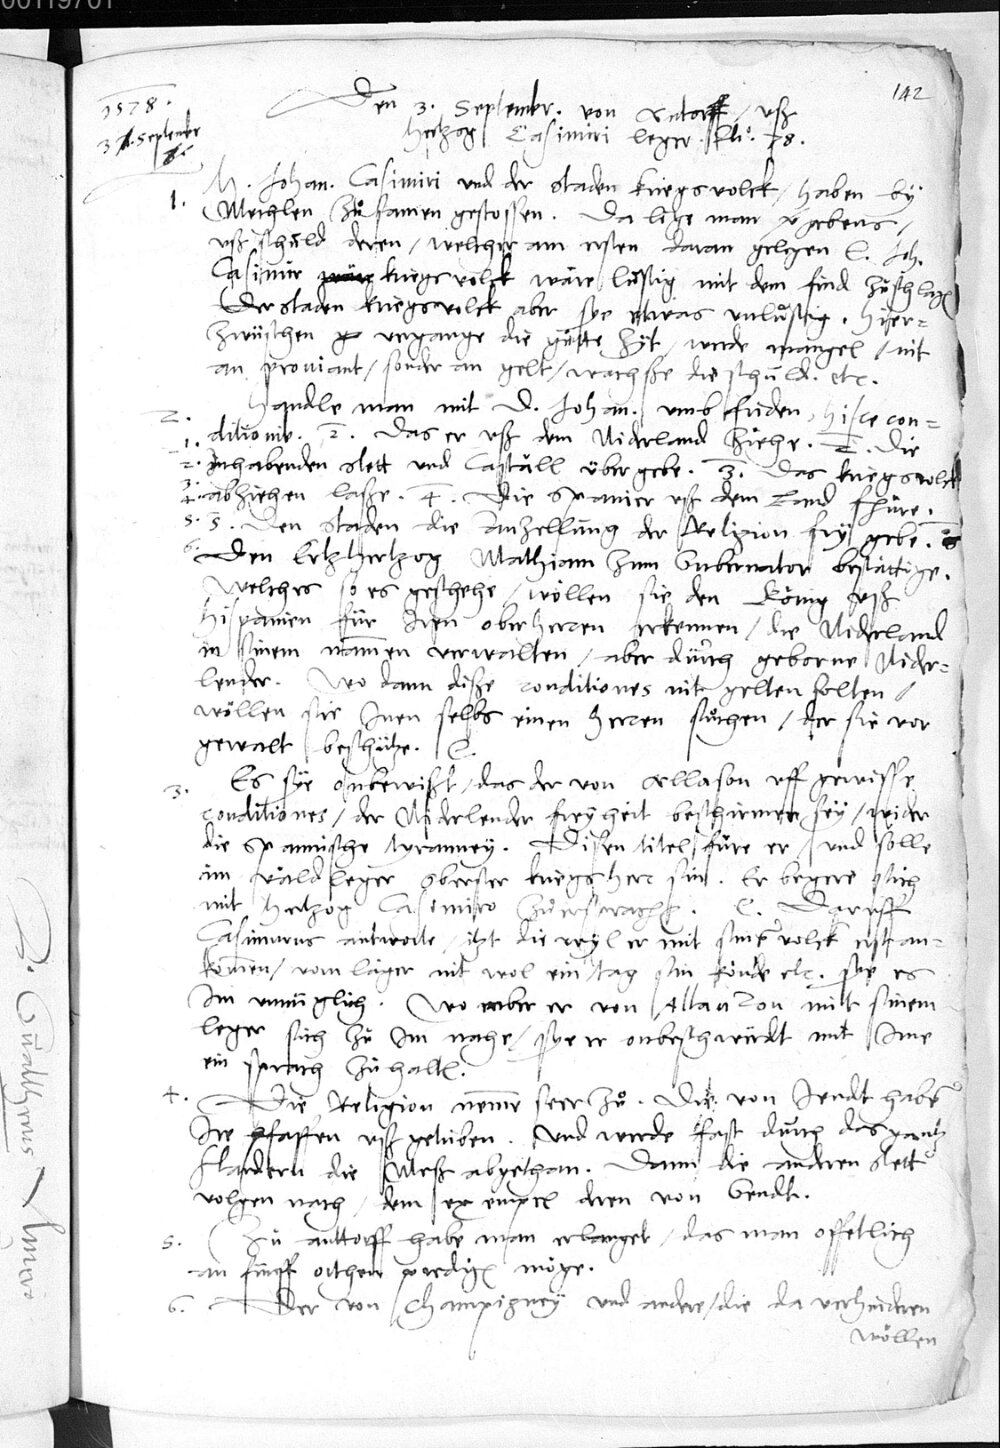 00119701
142
1578.
3. Septembr
Den 3. Septembr. von Antorff / uß
Hertzog Casimiri leger. 78.
1. H. Johan. Casimiri und der staden kriegsvolck / haben by
Mechlen zůsamen gestossen. Da lige man vergebens /
uß schuld deren / welcher am ersten daran gelegen. Joh.
Casimirs kriegsvolck wäre lustig mit dem find zůschlagen
Der staden kriegsvolck aber sye etwas unlustig. Hier=
zwüschen vergange die gůtte zyt / werde mangel / nit
an proviant / sonder an gelt / wachsse die schuld. etc.
2. Handle man mit D. Johan. umb friden, hisce con=
ditionib. 1. Das er uß dem Niderland ziehe. 2. Die
Inhabenden stett und Caställ übergebe. 3. Das kriegsvolck
abziehen lasse. 4. Die Spanier uß dem Land fhüre.
5. Den staden die anstellung der Religion fry gebe. 6
Den Ertzhertzog Mathiam zum Gubernator bestättige.
Welches so es geschehe / wöllen sie den König uß
Hispanien für Iren oberherren erkennen / die Niderland
in sinem nammen verwalten / aber durch geborne Nider=
lender. Wo dann diße conditiones nit gelten solten /
wöllen sie Inen selbs einen Herren sůchen / der sie vor
gewalt beschütze.
3. Es sye onbewißt / das der von Allason uff gewisse
conditiones / der Niderlender fryheit beschirmer sey / wider
die Spannische tyranney. Disen titel füre er / und sölle
im väldleger oberster kriegsherr sin. Er begere sich
mit Hertzog Casimiro zůersprachen. Daruff
Casimirus antworte / itzt die wyl er mit sinem volck erst an=
kommen / vom läger nit wol ein tag sin könde etc. sye es
Im unmüglich. Wo aber er von Allanzon mitt sinem
leger sich zů Im nahe / sye er onbeschwerdt mit Ime
ein sprach zůhalten.
4. Die Religion nemme seer zů. Die von Gendt haben
Ire pfaffen uß getriben. Und werde fast durch das gantz
Flandern die Meß abgethan. Dann die anderen stett
volgen nach / dem exempel deren von Gendt.
5. Zů anttorff habe man erlanget / das man offetlich
an fünff orthen predigen möge.
6. Der von Champigney und andere / die da verhinderen
wöllen